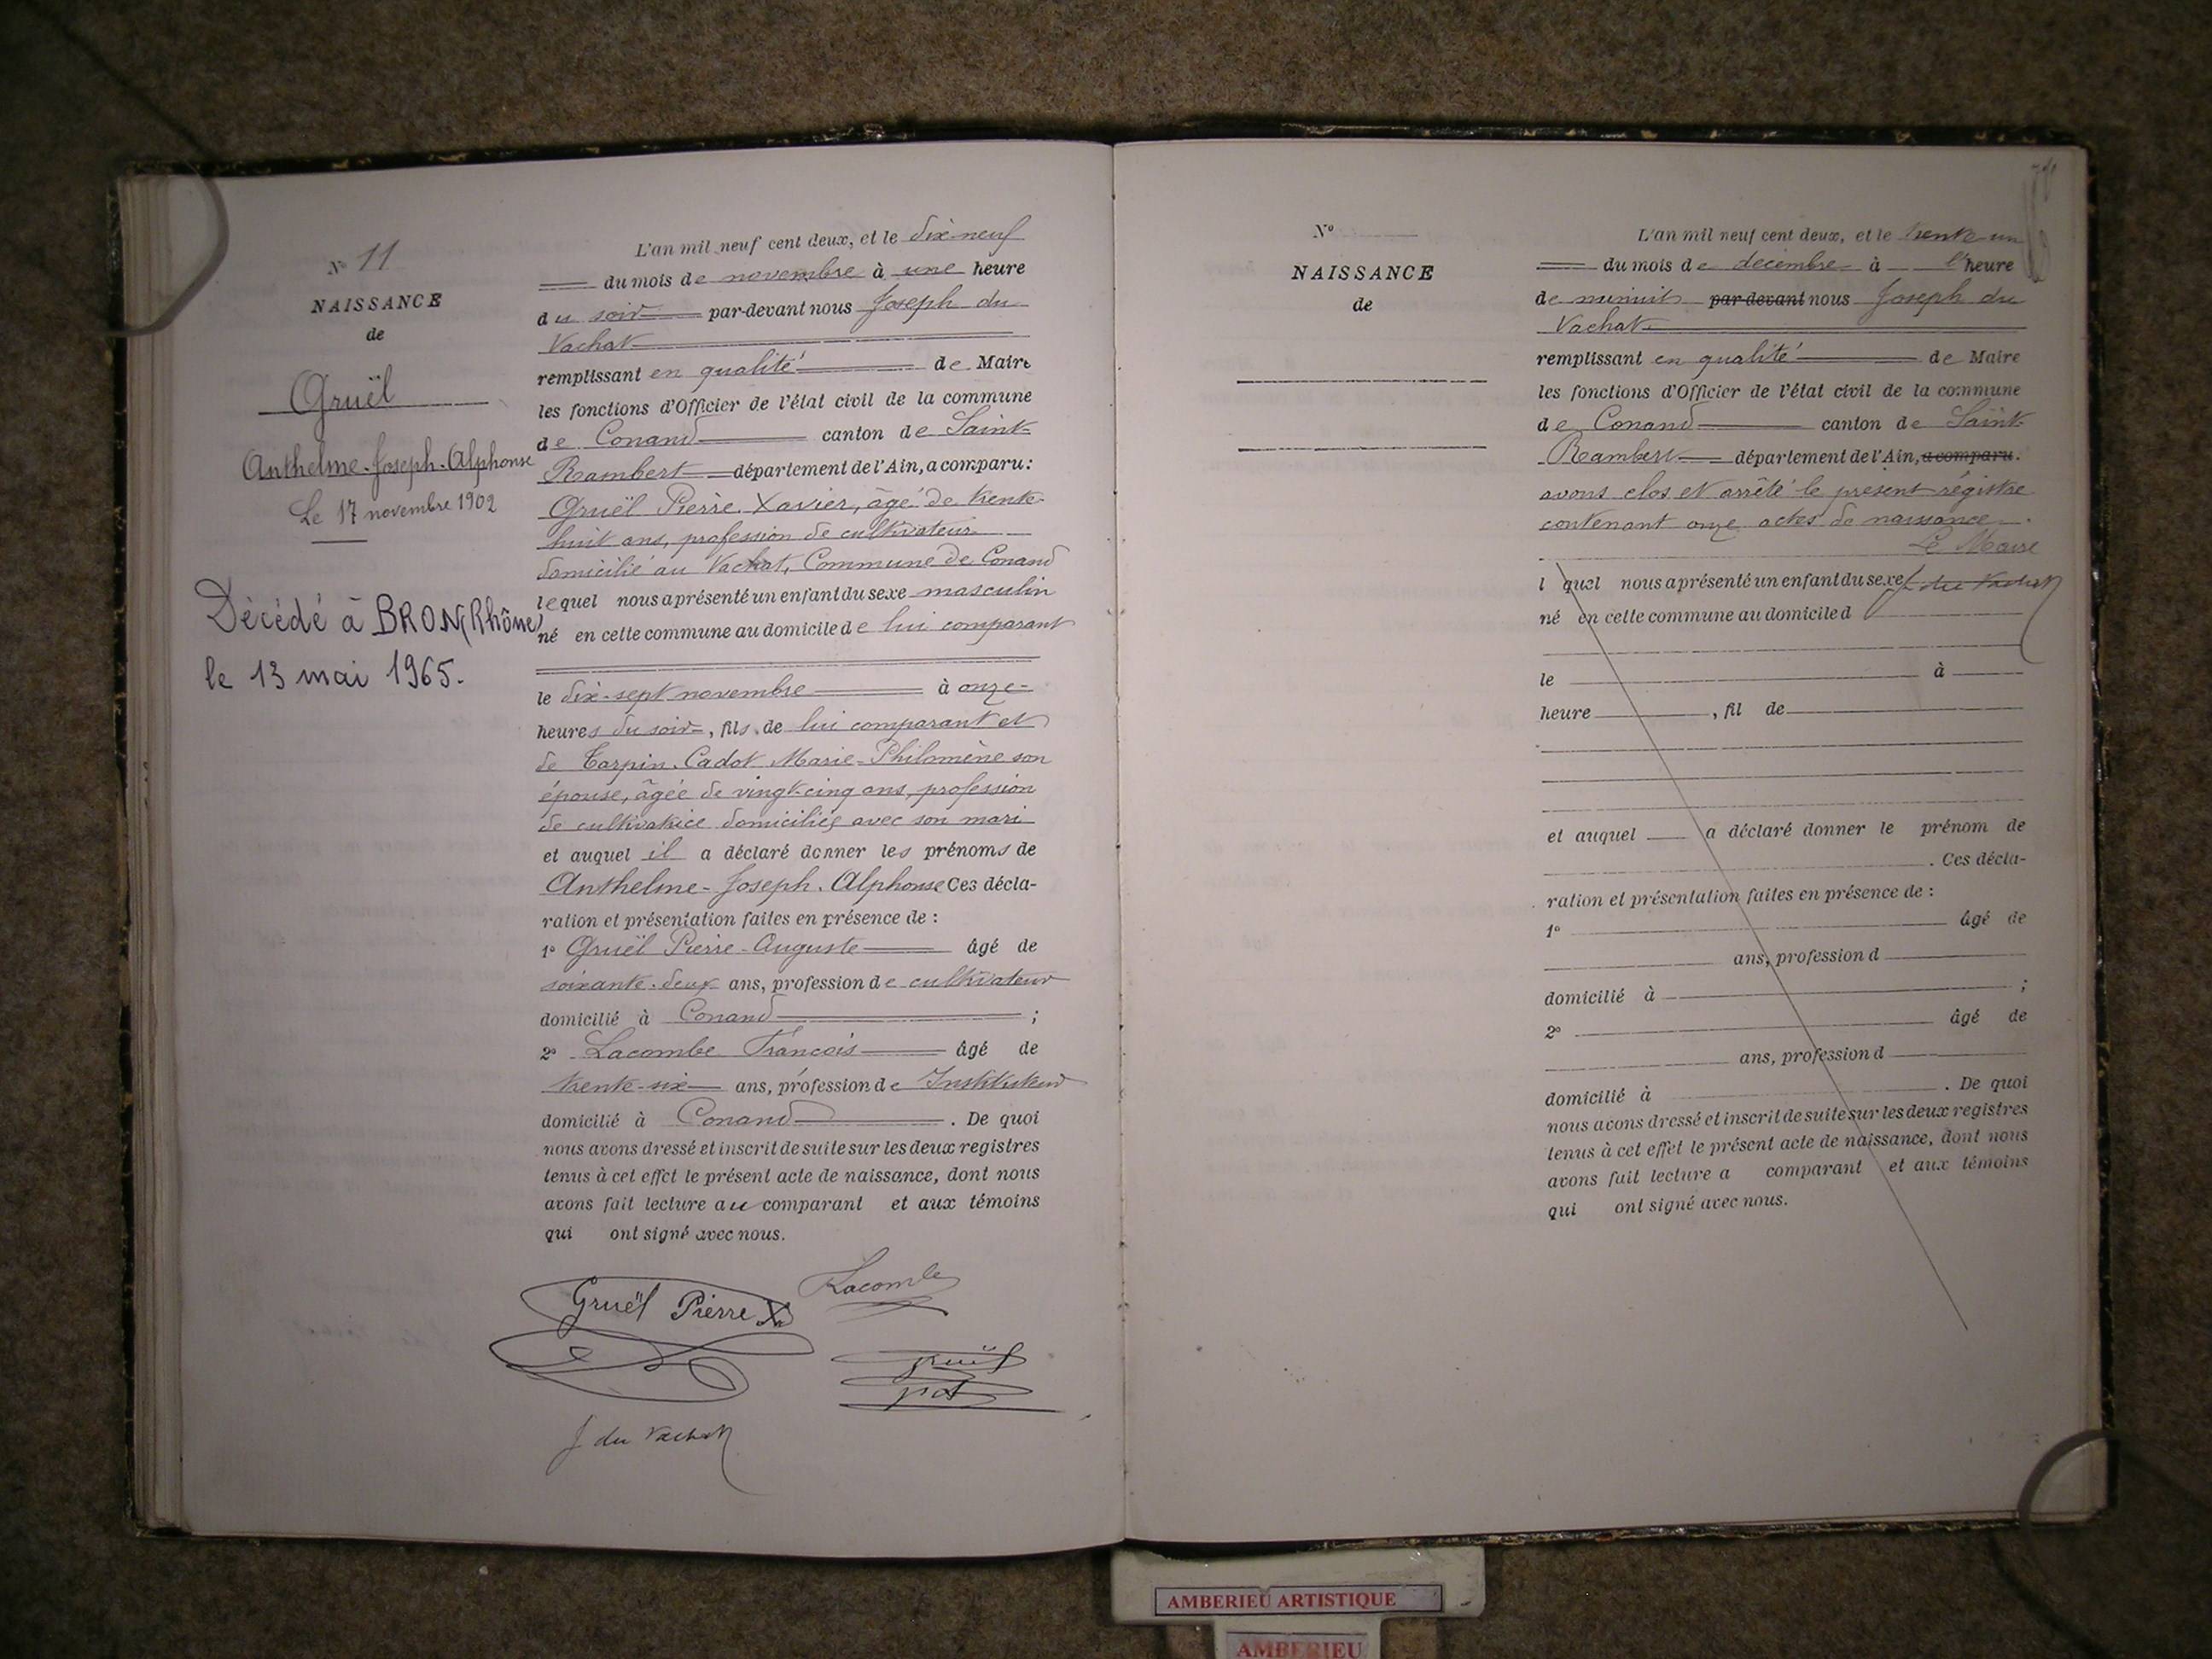 N° 11
NAISSANCE
de
Gruël
Anthelme-Joseph-Alphonse
Le 17 novembre 1902
Décédé à BRON (Rhône)
le 13 mai 1965.
L'an mil neuf cent deux, et le dix-neuf
du mois de novembre à une heure
du soir par-devant nous Joseph du
Vachat
remplissant en qualité de Maire
les fonctions d'Officier de l'état civil de la commune
de Conand canton de Saint-
Rambert département de l'Ain, a comparu :
Gruël Pierre Xavier, âgé de trente-
huit ans, profession de cultivateur
domicilié au Vachat, Commune de Conand
lequel nous a présenté un enfant du sexe masculin
né en cette commune au domicile de lui comparant
le dix-sept novembre à onze
heures du soir, fils de lui comparant et
de Tarpin-Cadot Marie-Philomène son
épouse, âgée de vingt-cinq ans, profession
de cultivatrice domiciliée avec son mari
et auquel il a déclaré donner les prénoms de
Anthelme-Joseph-Alphonse Ces décla-
ration et présentation faites en présence de :
1° Gruël Pierre-Auguste âgé de
soixante-deux ans, profession de cultivateur
domicilié à Conand ;
2° Lacombe François âgé de
trente-six ans, profession de Instituteur
domicilié à Conand . De quoi
nous avons dressé et inscrit de suite sur les deux registres
tenus à cet effet le présent acte de naissance, dont nous
avons fait lecture au comparant et aux témoins
qui ont signé avec nous.
Gruël Pierre X
Lacombe
gruël
J du Vachat
N°
NAISSANCE
de
L'an mil neuf cent deux, et le trente-un
du mois de décembre à l'heure
de minuit par-devant nous Joseph du
Vachat
remplissant en qualité de Maire
les fonctions d'Officier de l'état civil de la commune
de Conand canton de Saint-
Rambert département de l'Ain, a comparu.
avons clos et arrêté le présent régistre
contenant onze actes de naissance.
Le Maire
l quel nous a présenté un enfant du sexe J du Vachat
né en cette commune au domicile d
le à
heure , fil de
et auquel a déclaré donner le prénom de
. Ces décla-
ration et présentation faites en présence de :
1° âgé de
ans, profession d
domicilié à ;
2° âgé de
ans, profession d
domicilié à . De quoi
nous avons dressé et inscrit de suite sur les deux registres
tenus à cet effet le présent acte de naissance, dont nous
avons fait lecture a comparant et aux témoins
qui ont signé avec nous.
AMBERIEU ARTISTIQUE
AMBERIEU